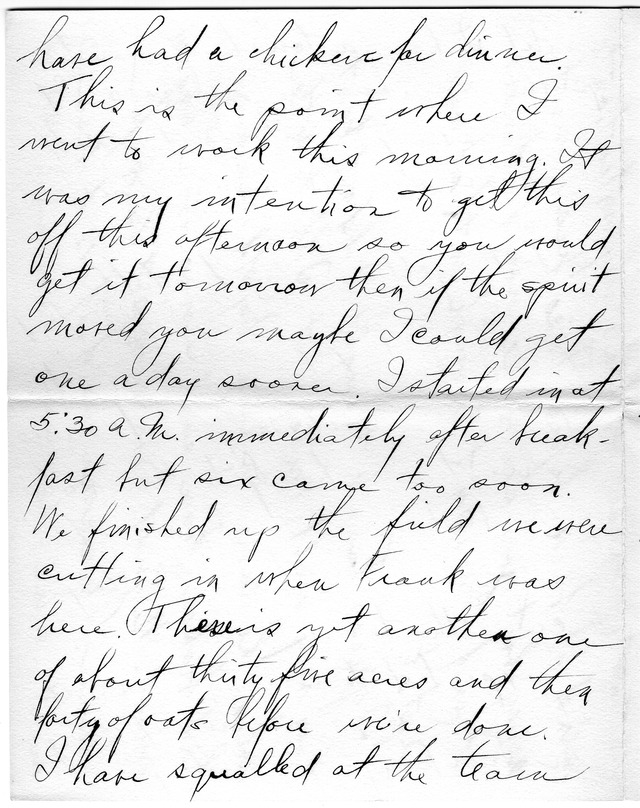 have had a chicken for dinner.
This is the point where I
went to work this morning. It
was my intention to get this
off this afternoon so you would
get it tomorrow then if the spirit
moved you maybe I could get
one a day sooner. I started in at
5:30 A.M. immediately after break-
fast but six came too soon.
We finished up the field we were
cutting in when Frank was
here. There is yet another one
of about thirty five acres and then
forty of oats before we're done.
I have squalled at the team